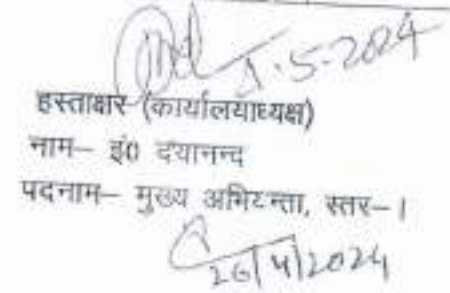 1.5.2024
हस्ताक्षर (कार्यालयाध्यक्ष)
नाम– इं0 दयानन्द
पदनाम– मुख्य अभियन्ता, स्तर–।
26/4/2024